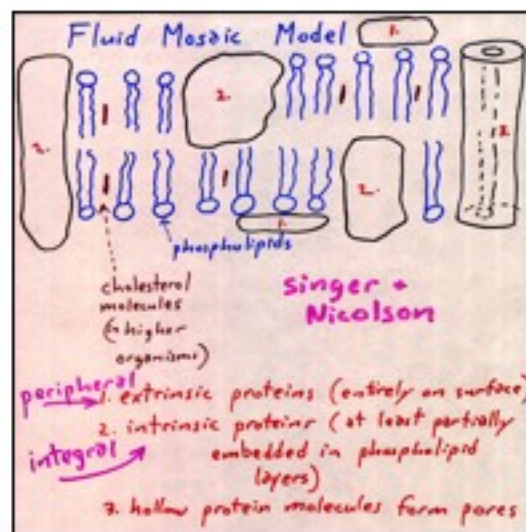 Fluid Mosaic Model
1.
2.
2.
2.
1.
phospholipids
cholesterol
molecules
(in higher
organisms)
Singer +
Nicolson
peripheral
1. extrinsic proteins (entirely on surface)
2. intrinsic proteins (at least partially
embedded in phospholipid
layers)
integral
3. hollow protein molecules form pores